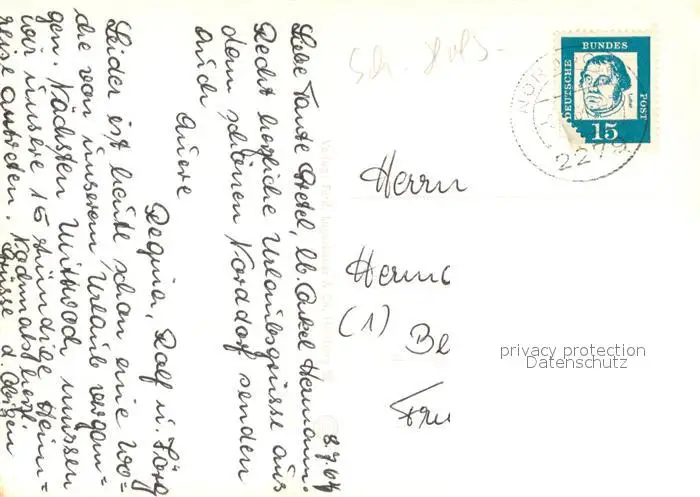 8.7.64
Liebe Tante Gretel, lb. Onkel Hermann.
Recht herzliche Urlaubsgrüsse aus
dem schönen Norddorf senden
Auch
Euere
Regina, Ralf u. Jörg
Leider ist heute schon eine Wo=
che von unserem Urlaub vergan=
gen. Nächsten Mittwoch müssen
wir unsere 15 stündige Heim=
reise antreten. Nochmals herzl.
Grüsse d. Obigen
Herrn
Herm
(1) Be
DEUTSCHE
BUNDES
POST
15
NORDDO
2279
privacy protection
Datenschutz